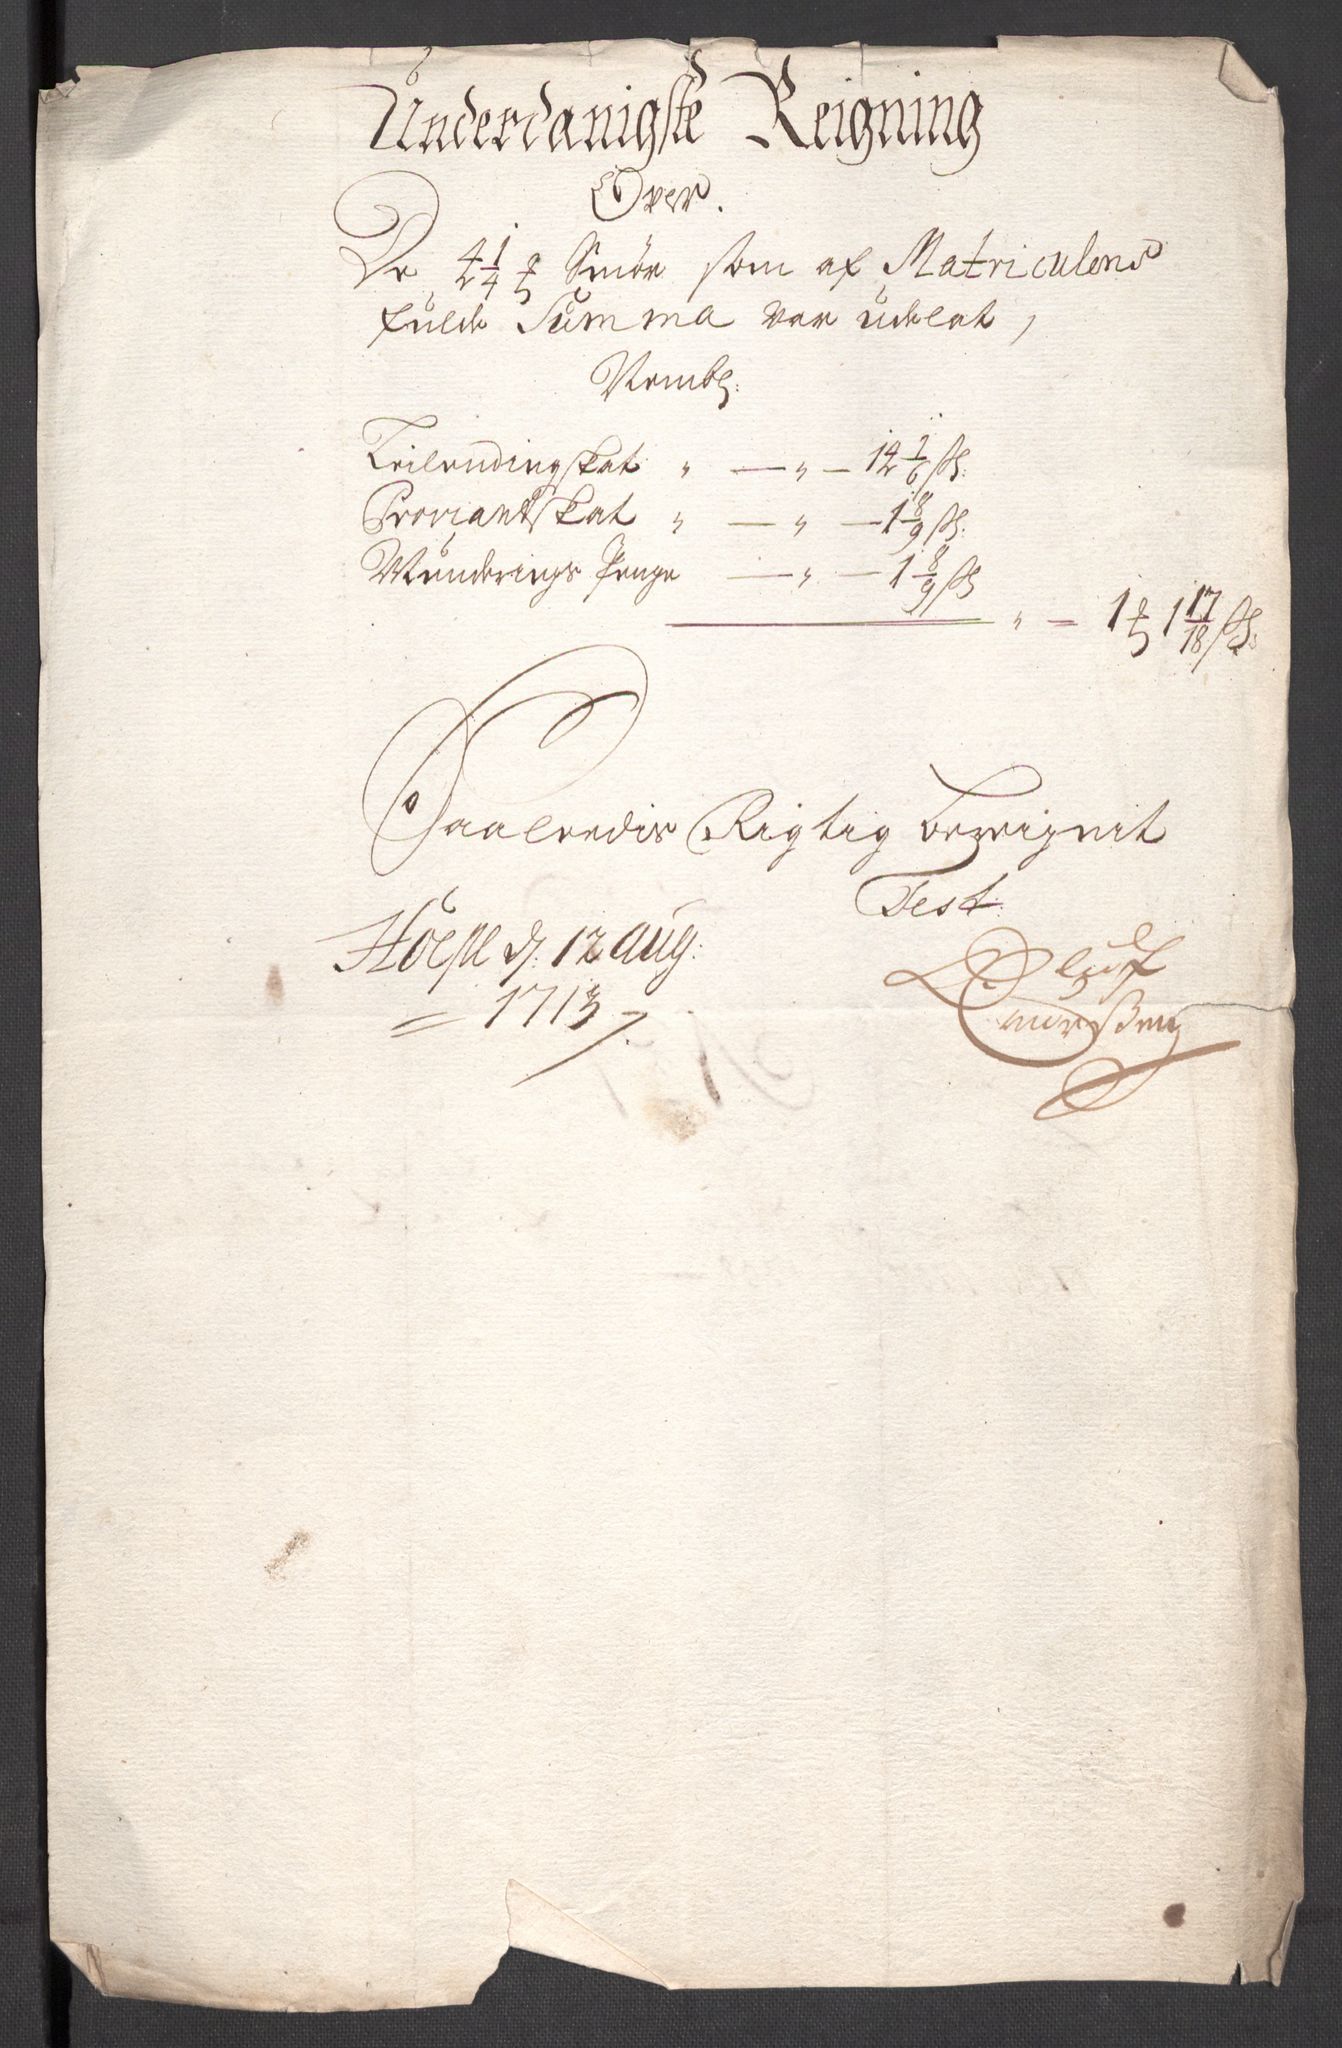 Underdanigste Reigning
Over.
De 4 1/4 ℔ Smör som af Matriculens
fulde Summa var udelat,
Nembl:
Leilendingskat „ — „ — 14 1/6 ß:
Proviantskat „ — „ — 1 8/9 ß:
Munderings Penge — „ — 1 8/9 ß
„ = 1 ℔ 1 17/18 ß:
Saaledis Rigtig bereignit
Test:
d. 12 aug:
Oluf
= 1713